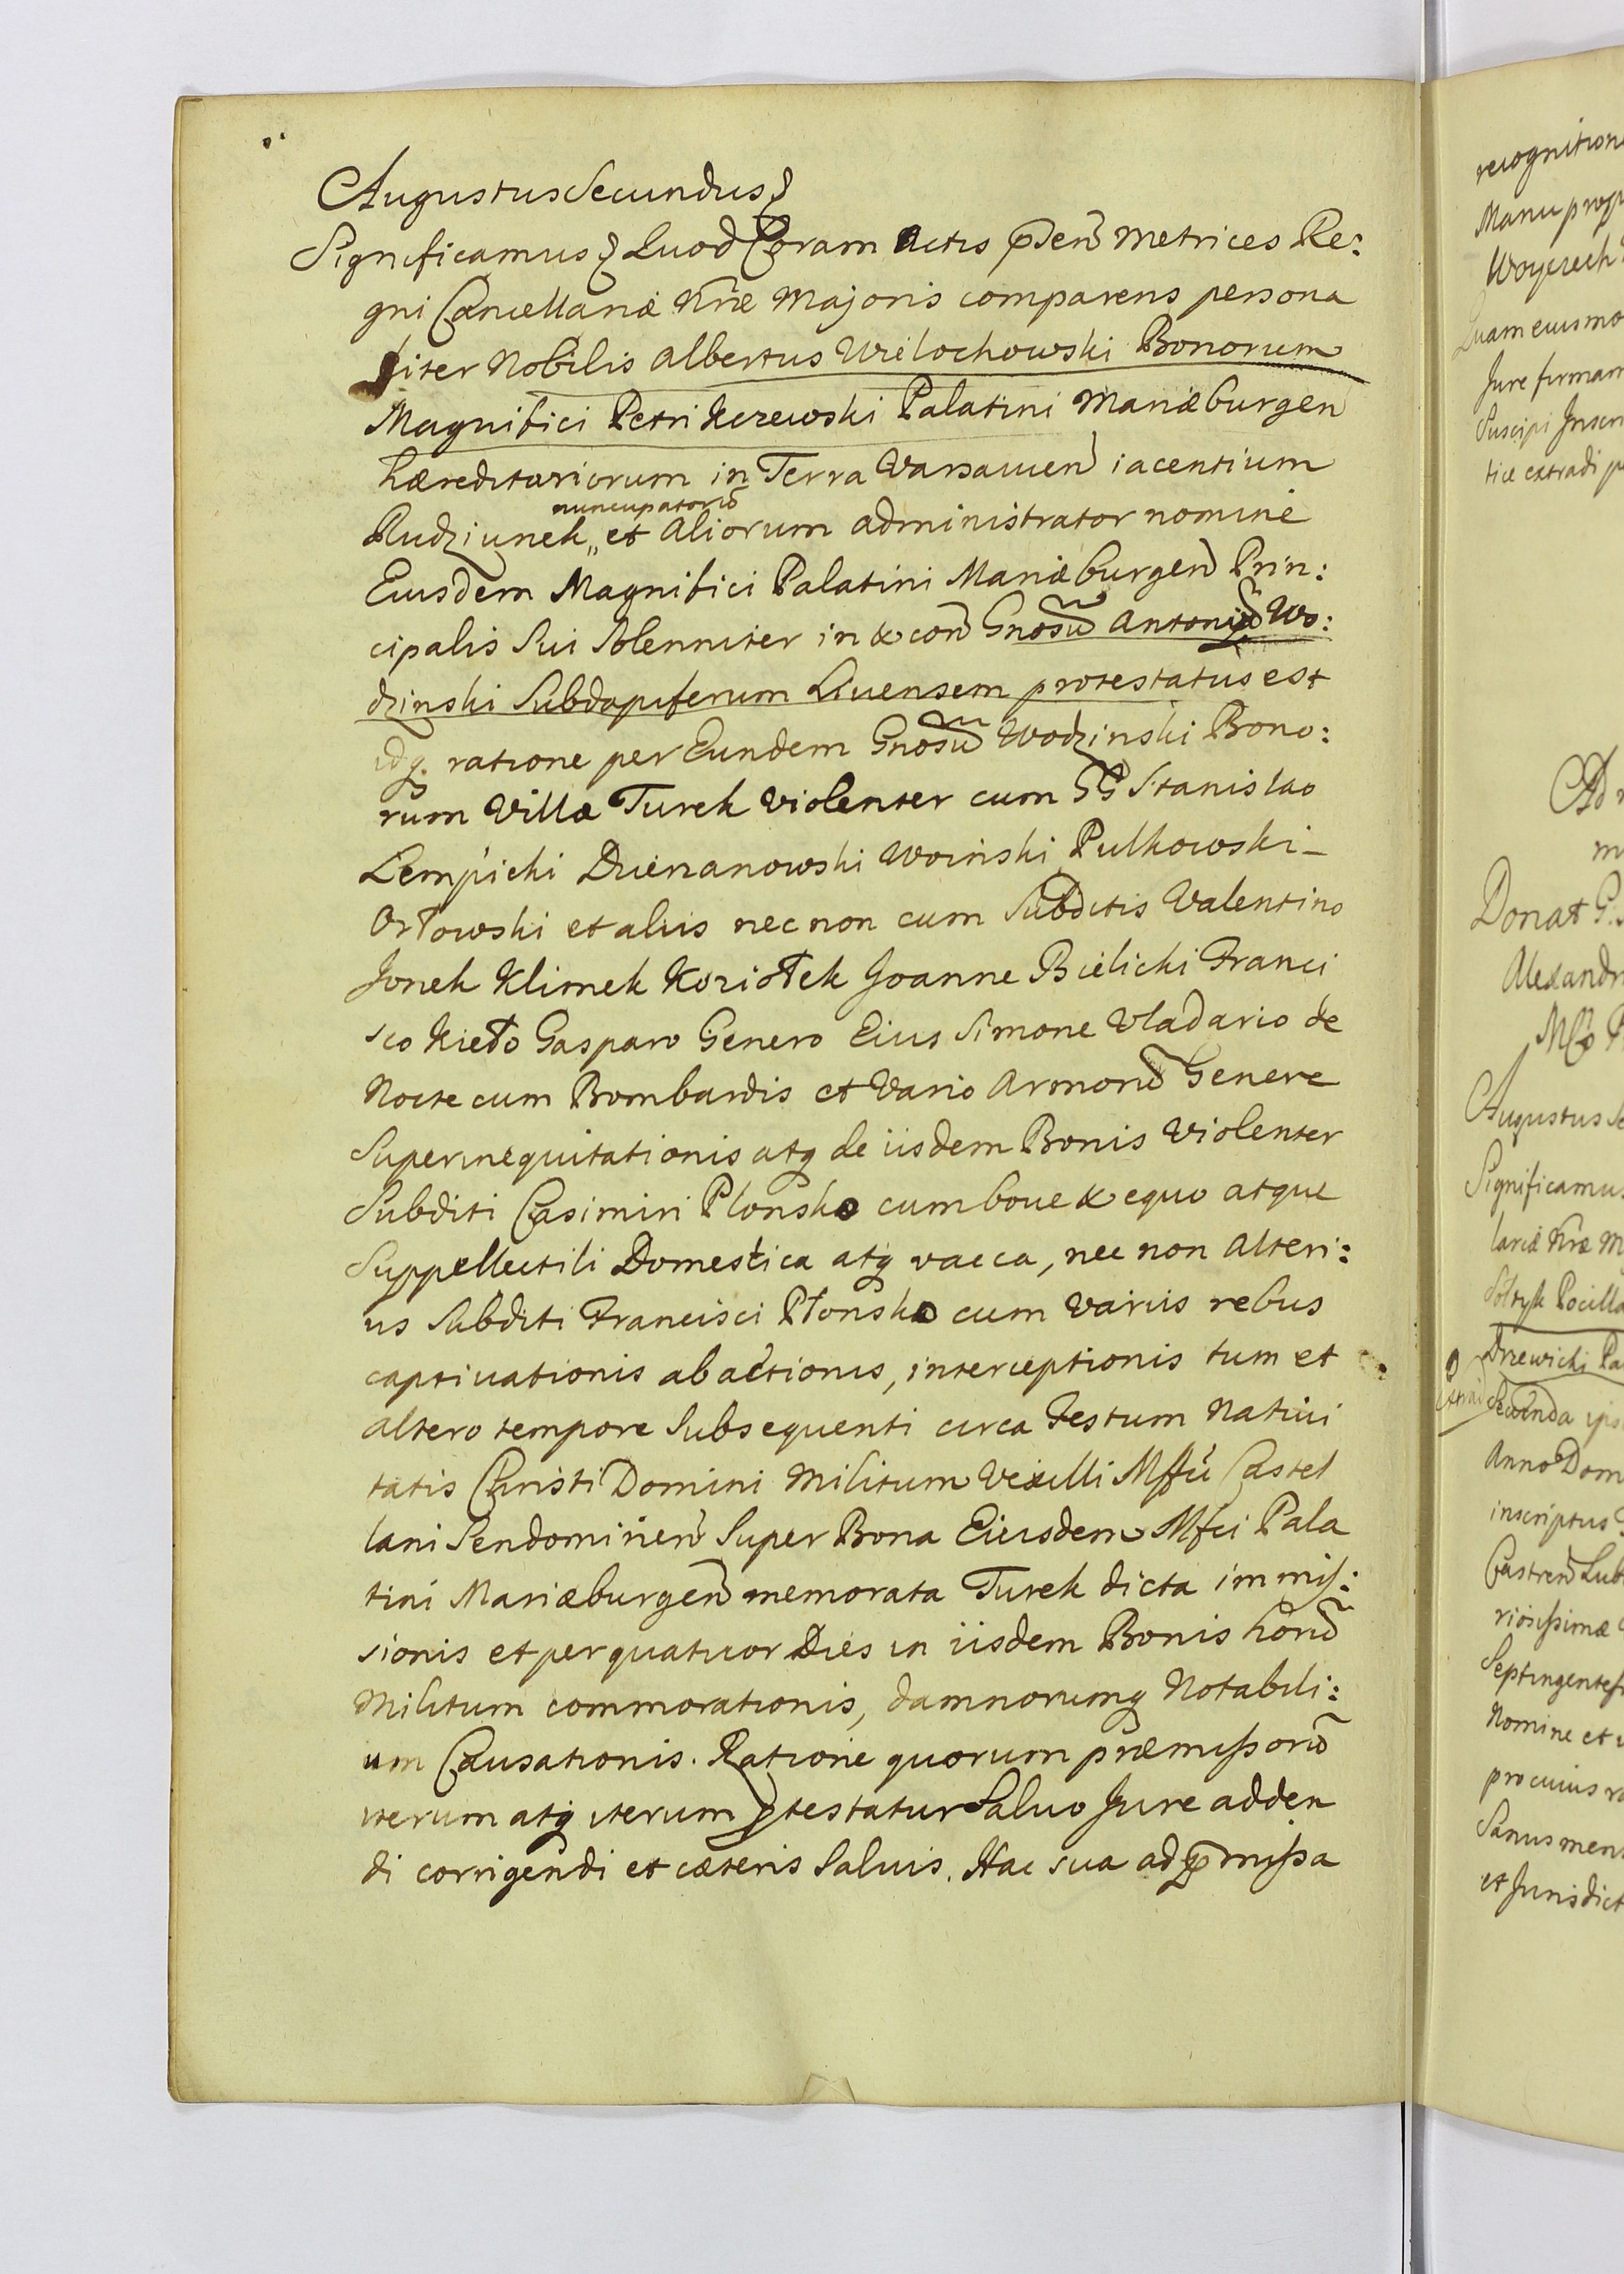 Augustus Secundus
Significamus Quod Coram Actis p̃sen̄ Metrices Re:
gni Cancellariæ Nr̃æ Majoris comparens persona
liter Nobilis Albertus Wielochowski Bonorum
Magnifici Petri Kczewski Palatini Mariæburgen̄
hæreditariorum in Terra Varsavien̄ iacentium
nuncupatorũ
Rudziunek „ et Aliorum administrator nomine
Eiusdem Magnifici Palatini Mariæburgen̄ Prin:
cipalis Sui Solenniter in & con̄ Gnosũ Antoniũ Wo:
dzinski Subdapiferum Livensem protestatus est
idq. ratione per Eundem Gnosũ Wodzinski Bono:
rum Villæ Turek Violenter cum GG Stanislao
Lempicki Dzienanowski Woinski Pulkowski
Orłowski et aliis nec non cum Subditis Valentino
Jonek Klimek Koziołek Joanne Bielicki Franci
sco Kieło Gasparo Genero Eius Simone Vladario de
Nocte cum Bombardis et Vario Armorũ Genere
Superinequitationis atq de iisdem Bonis Violenter
Subditi Casimiri Plonsko cum bove & equo atque
Suppellectili Domestica atq vacca, nec non Alteri:
us Subditi Francisci Płonsko cum variis rebus
captivationis abactionis, interceptionis tum et
altero tempore Subsequenti circa Festum Nativi
tatis Christi Domini Militum Vexilli Castel
lani Sendomirien̄ Super Bona Eiusdem Mfci Pala
tini Mariæburgen̄ memorata Turek dicta immis:
sionis et per quatuor Dies in iisdem Bonis horũ
Militum commorationis, damnorumq Notabili:
um Causationis. Ratione quorum præmissorũ
iterum atq iterum p̱testatur Salvo Jure adden
di corrigendi et cæteris Salvis. Hac sua ad p̃missa
recognitione
Manu prop
Woyciech
Quam eius mo
Jure firmam
Suscipi Inscri
tice extradi
Donat G.
Alexandr
Augustus Se
Significamus
lariæ Nræ M
Sołtyk Pocilla
Drzewicki Pa
Anno Dom
inscriptus
Castren̄ Lub
riosissimæ
Septingentesi
Nomine et
pro cuius
Sanus ment
et Jurisdict